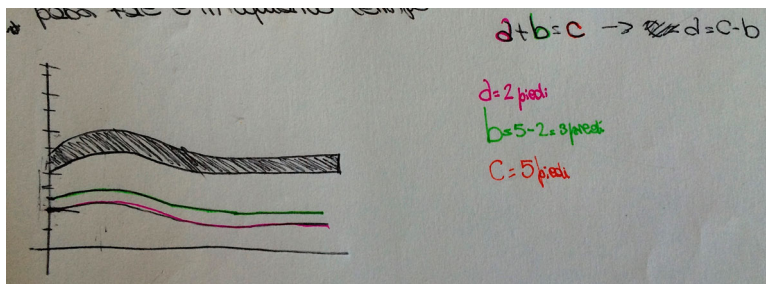 a+b=c → a=c-b
a=2 piedi
b=5-2=3 piedi
c=5 piedi